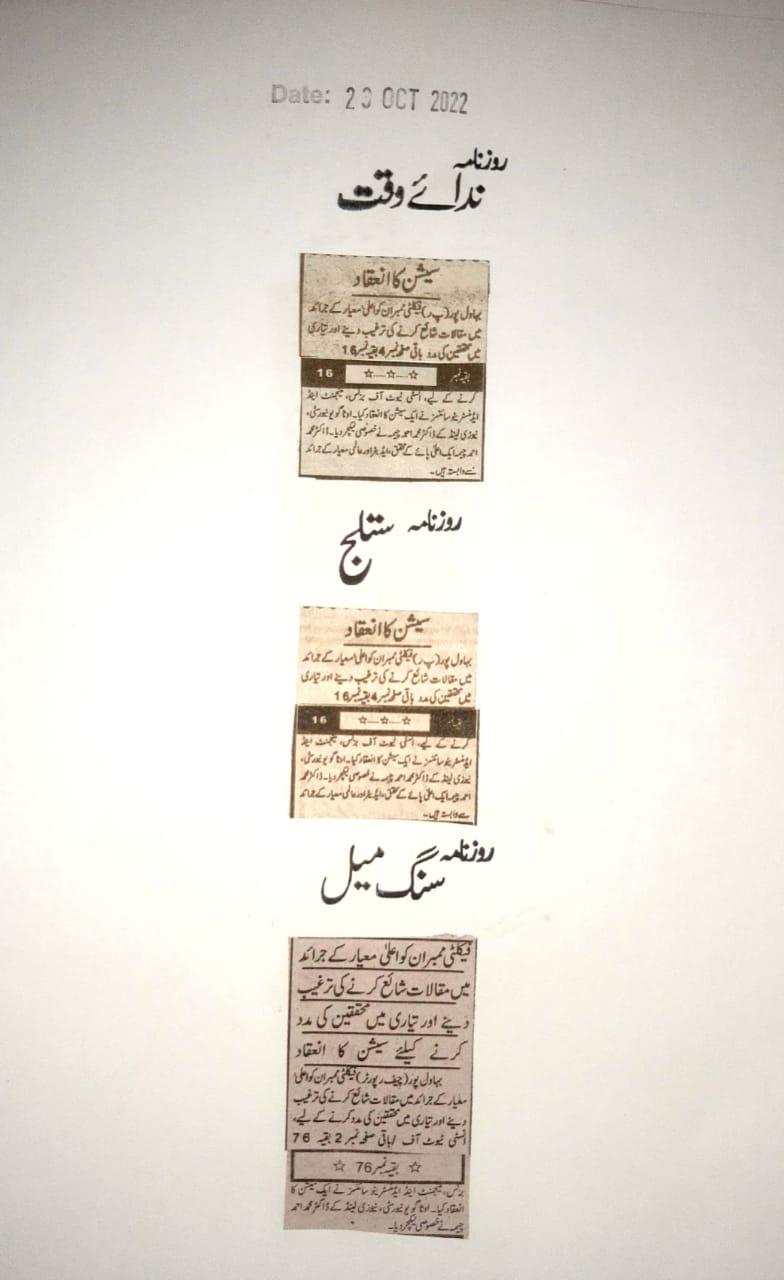 Date: 29 OCT 2022
روزنامہ
ندائے وقت
سیشن کا انعقاد
بہاول پور(پ ر) فیکلٹی ممبران کو اعلیٰ معیار کے جرائد
میں مقالات شائع کرنے کی ترغیب دینے اور تیاری
میں محققین کی مدد باقی صفحہ نمبر 4 بقیہ نمبر 16
بقیہ نمبر ☆---☆---☆ 16
کرنے کے لیے، انسٹی ٹیوٹ آف بزنس، مینجمنٹ اینڈ
ایڈمنسٹریٹو سائنسز نے ایک سیشن کا انعقاد کیا۔ اوٹاگو یونیورسٹی،
نیوزی لینڈ کے ڈاکٹر محمد احمد چیمہ نے خصوصی لیکچر دیا۔ ڈاکٹر محمد
احمد چیمہ ایک اعلیٰ پائے کے محقق، ایڈیٹر اور عالمی معیار کے جرائد
سے وابستہ ہیں۔
روزنامہ ستلج
سیشن کا انعقاد
بہاول پور(پ ر) فیکلٹی ممبران کو اعلیٰ معیار کے جرائد
میں مقالات شائع کرنے کی ترغیب دینے اور تیاری
میں محققین کی مدد باقی صفحہ نمبر 4 بقیہ نمبر 16
بقیہ نمبر ☆---☆---☆ 16
کرنے کے لیے، انسٹی ٹیوٹ آف بزنس، مینجمنٹ اینڈ
ایڈمنسٹریٹو سائنسز نے ایک سیشن کا انعقاد کیا۔ اوٹاگو یونیورسٹی،
نیوزی لینڈ کے ڈاکٹر محمد احمد چیمہ نے خصوصی لیکچر دیا۔ ڈاکٹر محمد
احمد چیمہ ایک اعلیٰ پائے کے محقق، ایڈیٹر اور عالمی معیار کے جرائد
سے وابستہ ہیں۔
روزنامہ
سنگ میل
فیکلٹی ممبران کو اعلیٰ معیار کے جرائد
میں مقالات شائع کرنے کی ترغیب
دینے اور تیاری میں محققین کی مدد
کرنے کیلئے سیشن کا انعقاد
بہاول پور(چیف رپورٹر) فیکلٹی ممبران کو اعلیٰ
معیار کے جرائد میں مقالات شائع کرنے کی ترغیب
دینے اور تیاری میں محققین کی مدد کرنے کے لیے،
انسٹی ٹیوٹ آف /باقی صفحہ نمبر 2 بقیہ 76
☆ بقیہ نمبر 76 ☆
بزنس، مینجمنٹ اینڈ ایڈمنسٹریٹو سائنسز نے ایک سیشن کا
انعقاد کیا۔ اوٹاگو یونیورسٹی، نیوزی لینڈ کے ڈاکٹر محمد احمد
چیمہ نے خصوصی لیکچر دیا۔